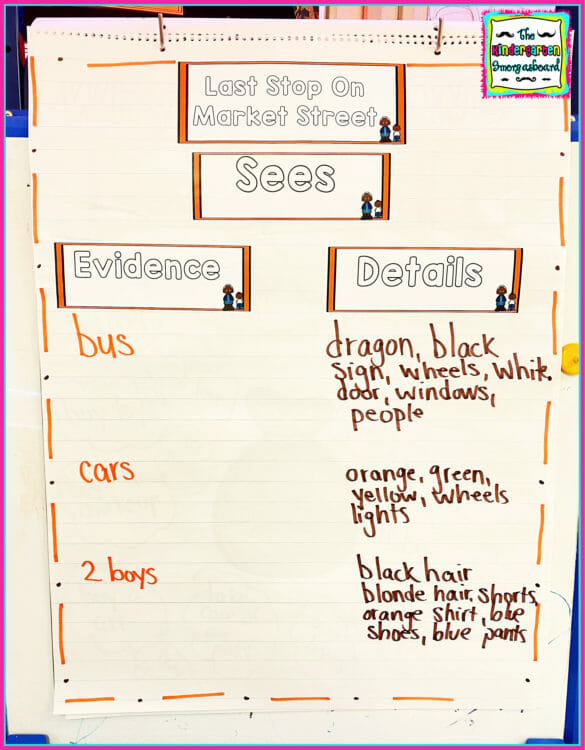 The
Kindergarten
Smorgasboard
Last Stop On
Market Street
Sees
Evidence
Details
bus
dragon, black
sign, wheels, white
door, windows,
people
cars
orange, green,
yellow, wheels
lights
2 boys
black hair
blonde hair, shorts,
orange shirt, blue
shoes, blue pants